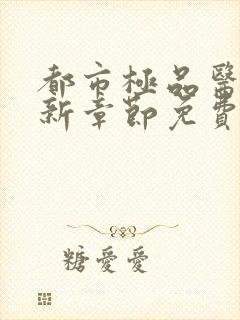 都市極品醫
新章節免費
糖愛愛